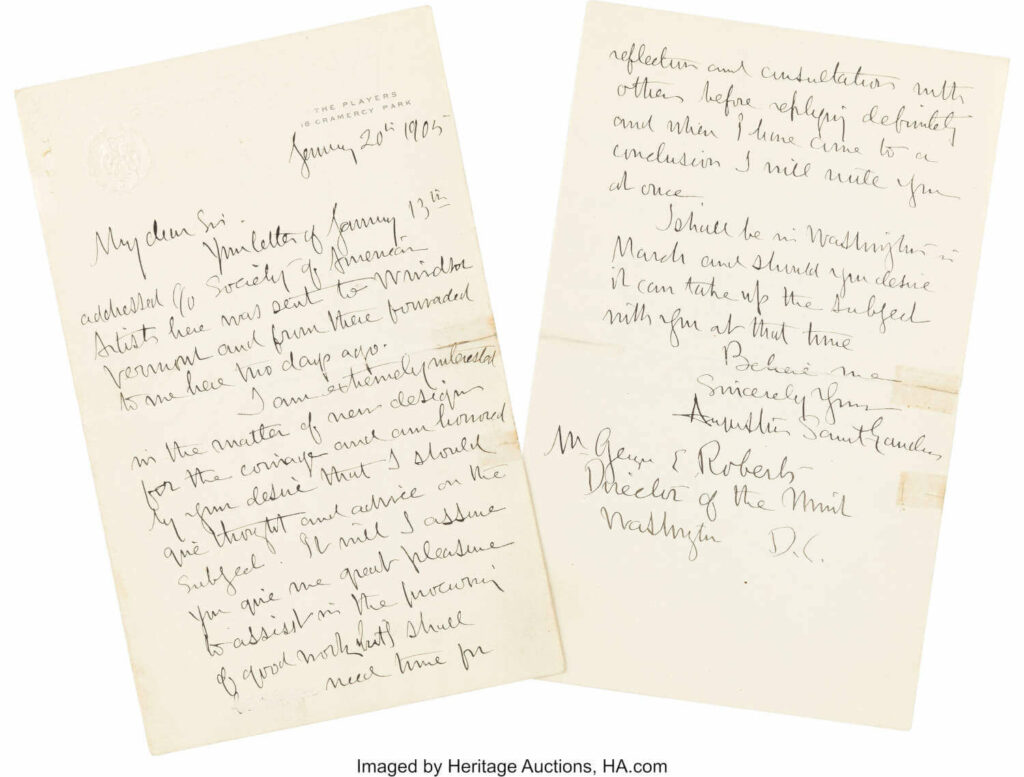 THE PLAYERS
16 GRAMERCY PARK
January 20th 1905
My dear Sir.
Your letter of January 13th
addressed c/o Society of American
Artists here was sent to Windsor
Vermont and from there forwarded
to me here two days ago.
I am extremely interested
in the matter of new designs
for the coinage and am honored
by your desire that I should
give thought and advice on the
subject. It will I assure
you give me great pleasure
to assist in the procuring
of good work but I shall
need time for
reflection and consultation with
others before replying definitely
and when I have come to a
conclusion I will write you
at once
I shall be in Washington in
March and should you desire
it can take up the subject
with you at that time
Believe me
Sincerely Yours
Augustus Saint Gaudens
Mr George E Roberts
Director of the Mint
Washington D.C.
Imaged by Heritage Auctions, HA.com